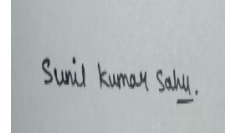 Sunil Kumar Sahu.